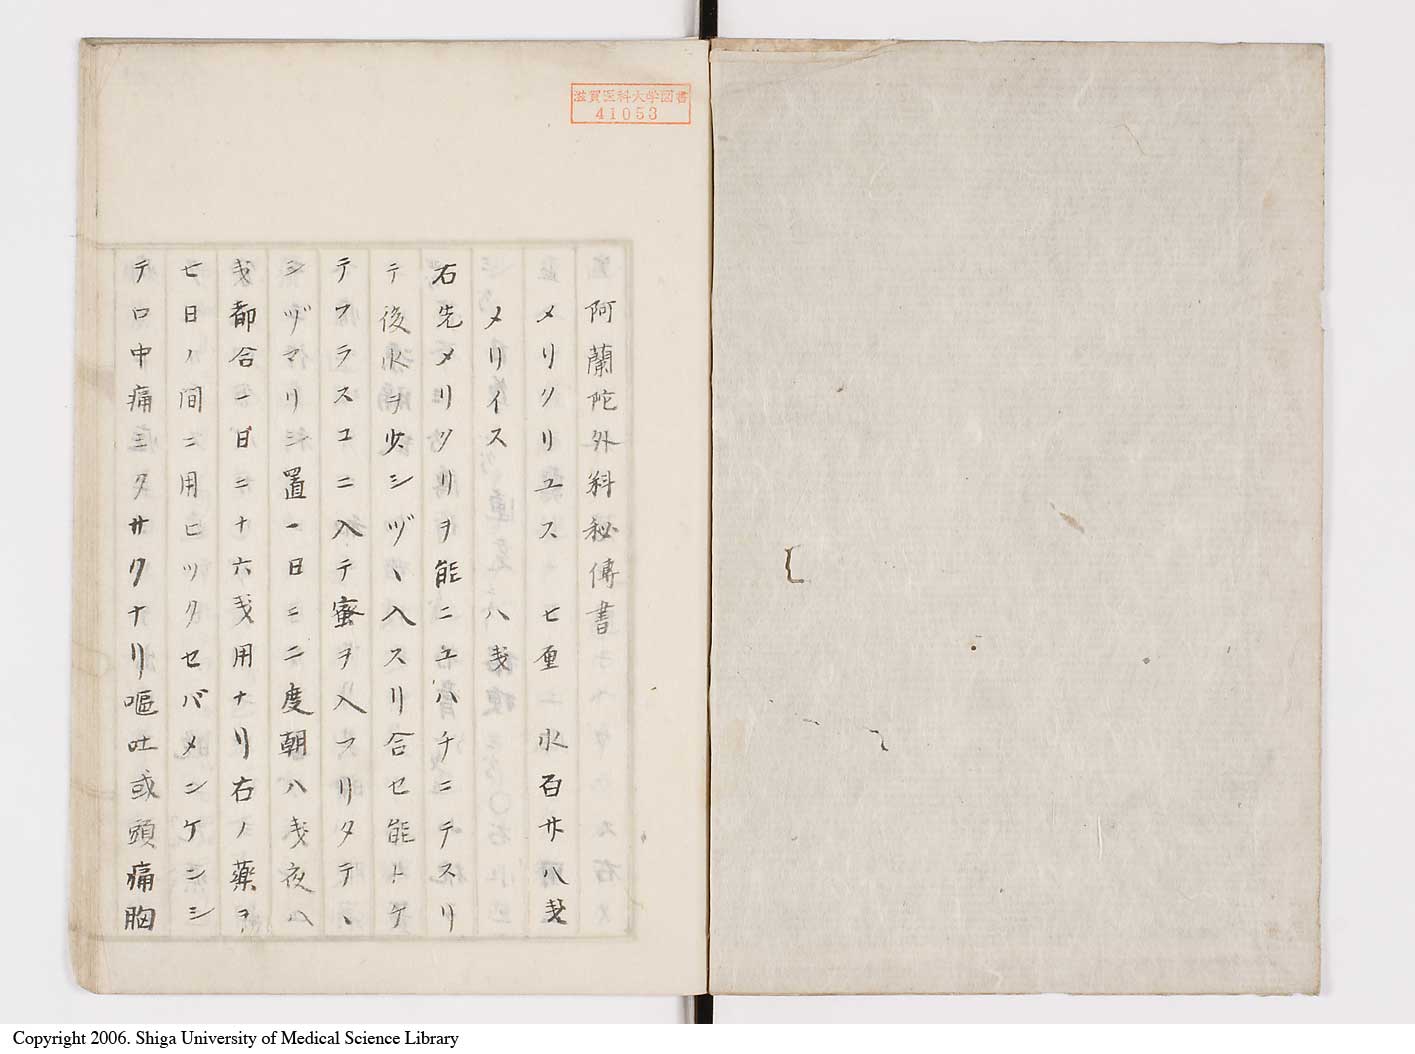 滋賀医科大学図書
41053
阿蘭陀外科秘傳書
メリクリユス 七重ニ 水百廿八戔
メリイス 八戔
右先メリクリヲ能ニユハチニテスリ
テ後水ヲ少シヅヽ入スリ合セ能トケ
テフラスコニ入テ蜜ヲ入フリタテヽ
シヅマリニ置一日ニ二度朝八戔夜八
戔都合一日ニ十六戔用ナリ右ノ薬ヲ
七日ノ間ニ用ヒツクセバメンケンシ
テ口中痛ミクサクナリ嘔吐或頭痛胸
Copyright 2006. Shiga University of Medical Science Library